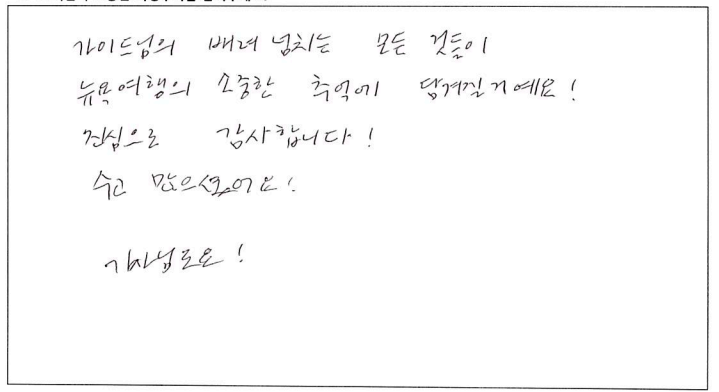 가이드님의 배려 넘치는 모든 것들이
뉴욕여행의 소중한 추억에 담겨질거예요!
진심으로 감사합니다!
수고 많으셨어요!
기사님도요!